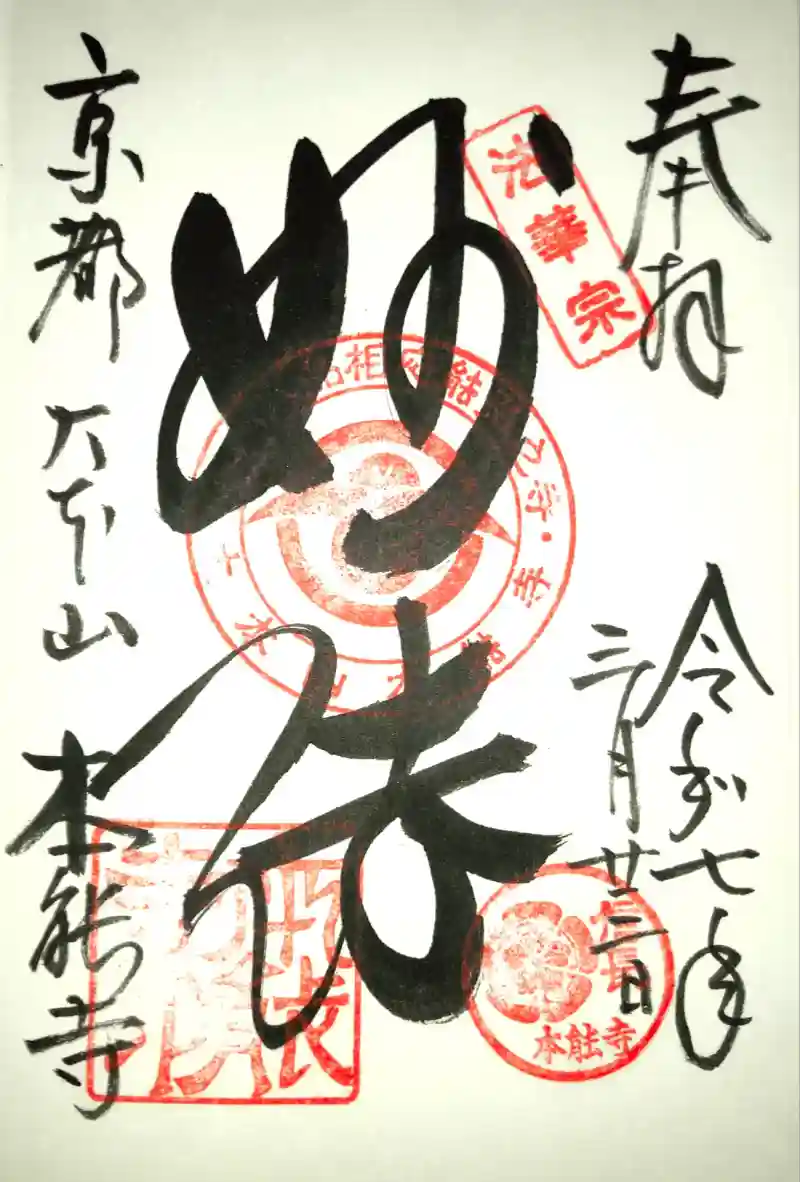 奉拝
令和七年
三月廿二日
法華宗
妙法
信長
本能寺
京都 大本山 本能寺